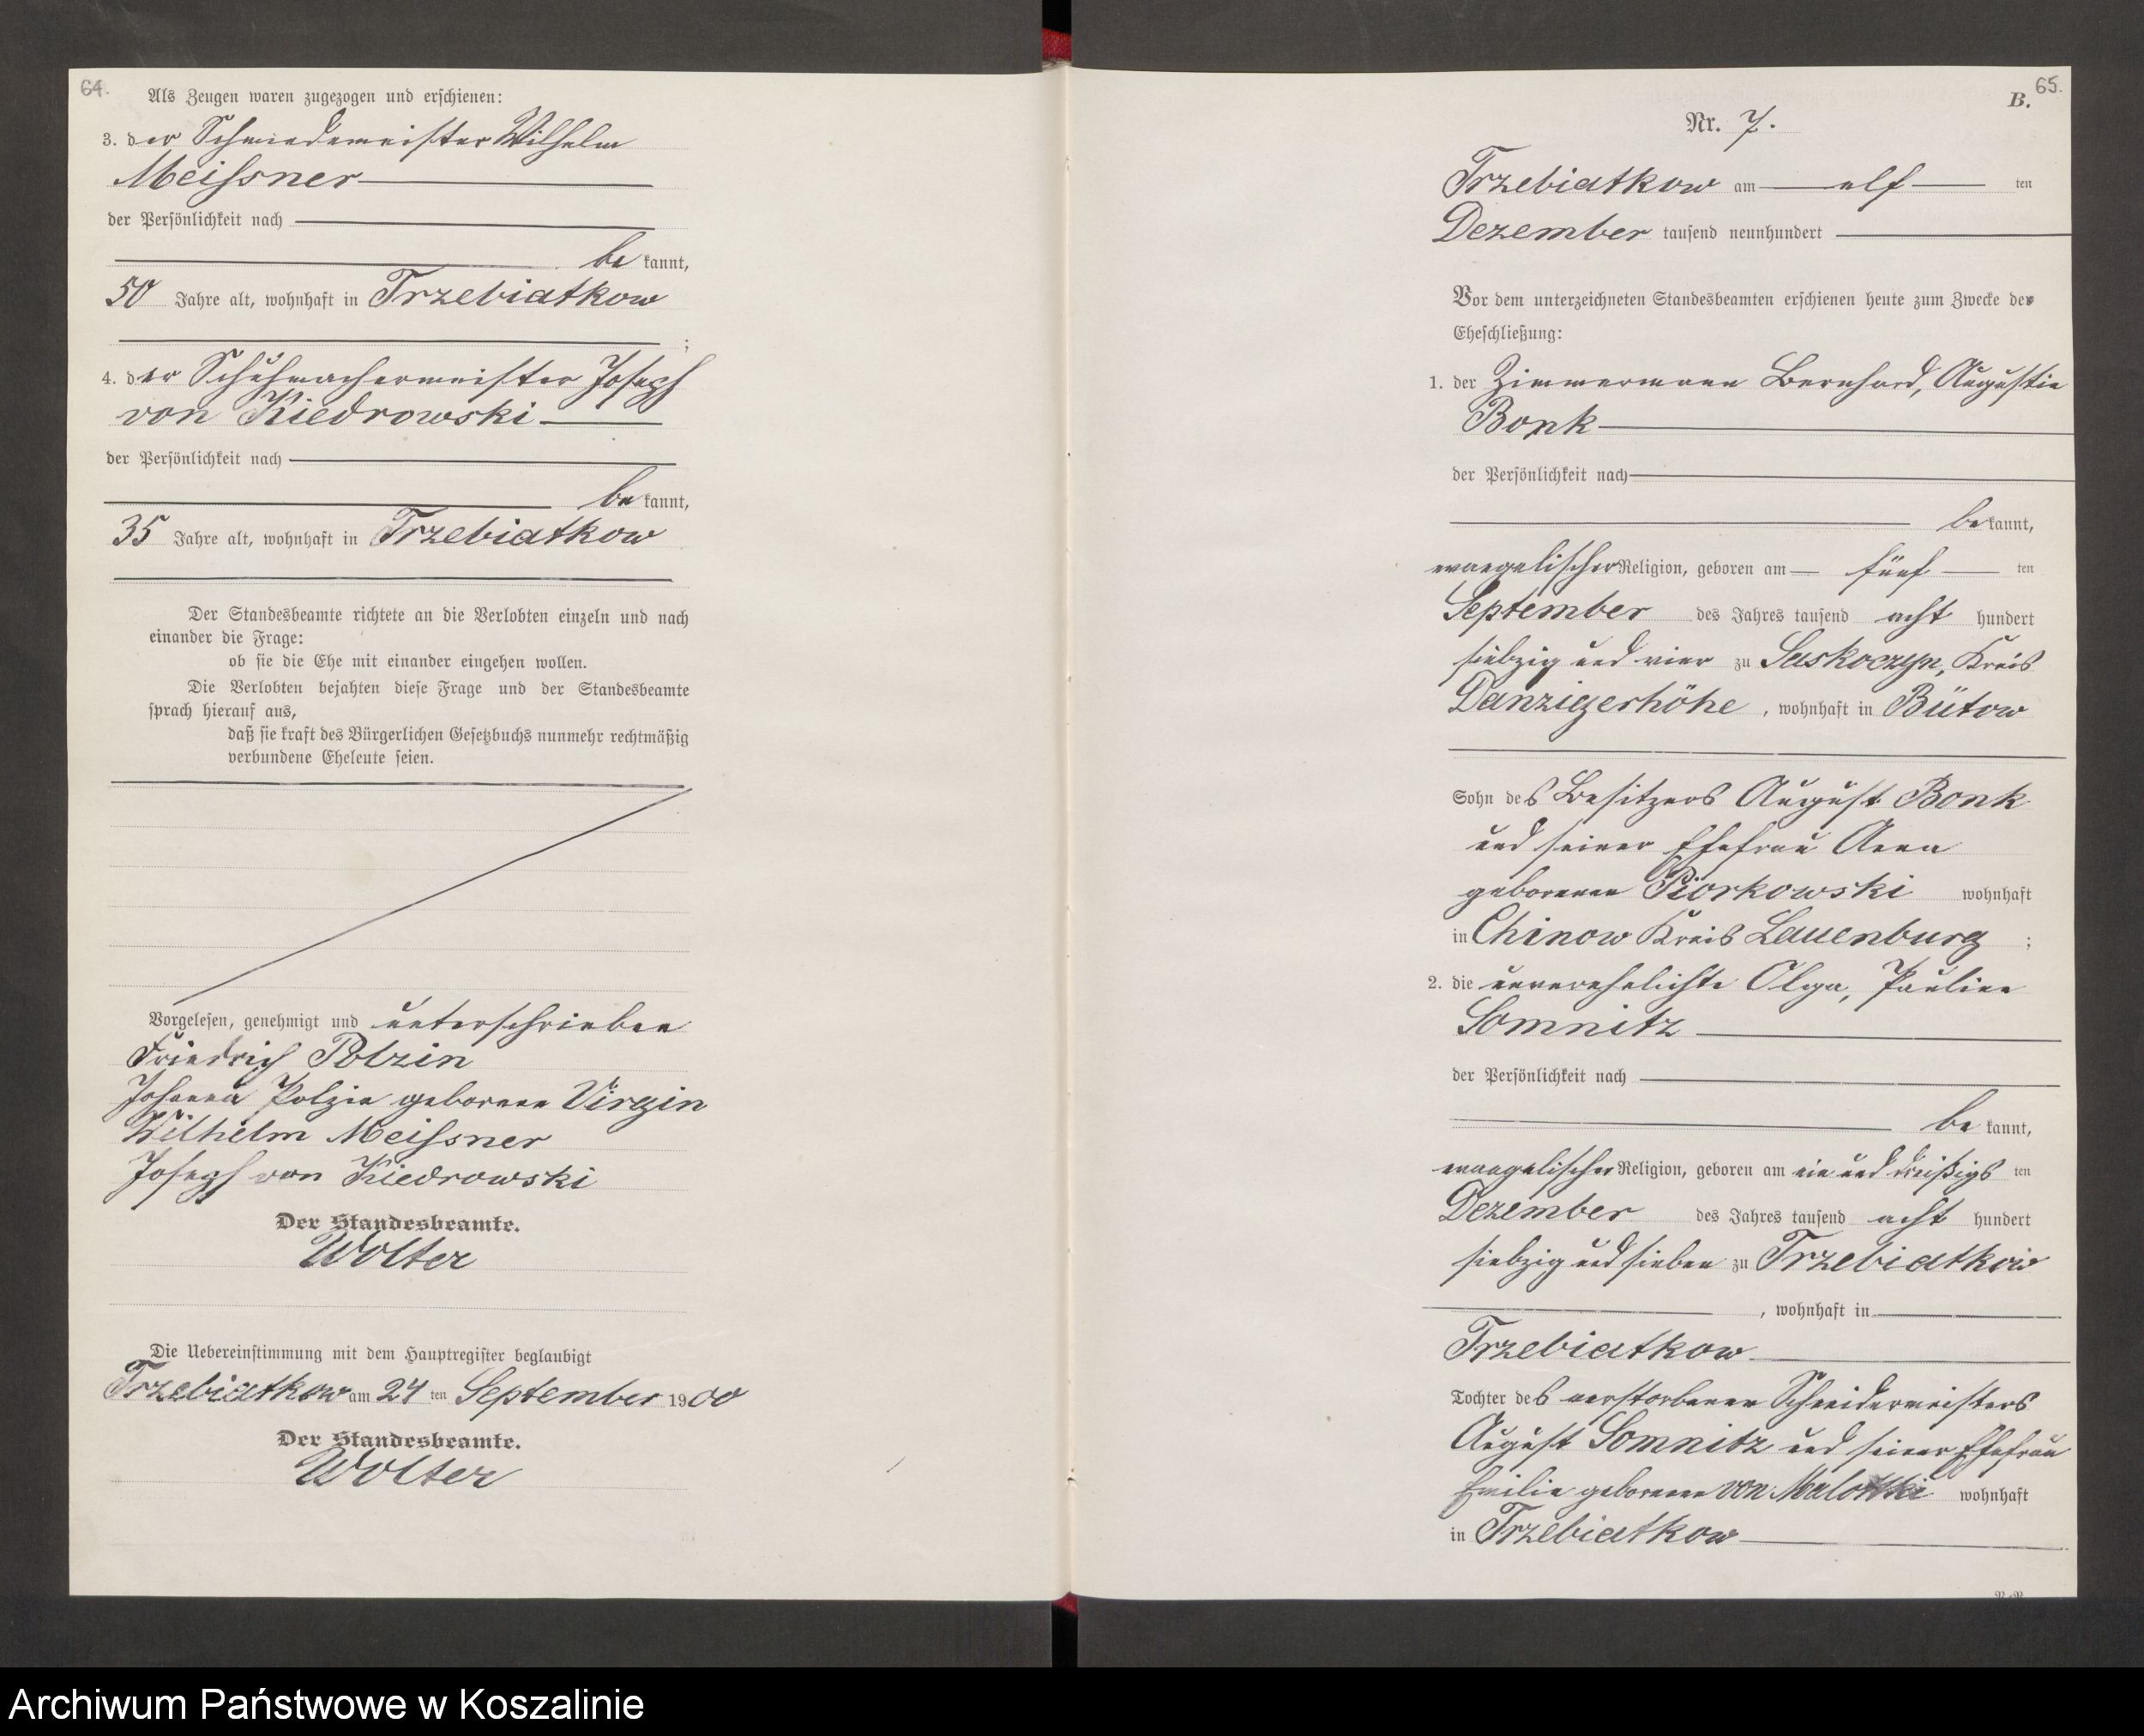 64.
Als Zeugen waren zugezogen und erschienen:
3. der Schmiedemeister Wilhelm
Meissner
der Persönlichkeit nach
be kannt,
50 Jahre alt, wohnhaft in Trzebiatkow
;
4. der Schuhmachermeister Joseph
von Kiedrowski
der Persönlichkeit nach
be kannt,
35 Jahre alt, wohnhaft in Trzebiatkow
Der Standesbeamte richtete an die Verlobten einzeln und nach
einander die Frage:
ob sie die Ehe mit einander eingehen wollen.
Die Verlobten bejahten diese Frage und der Standesbeamte
sprach hierauf aus,
daß sie kraft des Bürgerlichen Gesetzbuchs nunmehr rechtmäßig
verbundene Eheleute seien.
Vorgelesen, genehmigt und unterschrieben
Friedrich Polzin
Johanna Polzin geborene Virgin
Wilhelm Meissner
Joseph von Kiedrowski
Der Standesbeamte.
Wolter
Die Uebereinstimmung mit dem Hauptregister beglaubigt
Trzebiatkow am 24 ten September 1900
Der Standesbeamte.
Wolter
65.
B.
Nr. 7.
Trzebiatkow am elf ten
Dezember tausend neunhundert
Vor dem unterzeichneten Standesbeamten erschienen heute zum Zwecke der
Eheschließung:
1. der Zimmermann Bernhard, Augustin
Bonk
der Persönlichkeit nach
be kannt,
evangelischer Religion, geboren am fünf ten
September des Jahres tausend acht hundert
siebzig und vier zu Suskoczyn, Kreis
Danzigerhöhe, wohnhaft in Bütow
Sohn des Besitzers August Bonk
und seiner Ehefrau Anna
geborenen Piorkowski wohnhaft
in Chinow Kreis Lauenburg ;
2. die unverehelichte Olga, Pauline
Somnitz
der Persönlichkeit nach
be kannt,
evangelischer Religion, geboren am ein und dreißigs ten
Dezember des Jahres tausend acht hundert
siebzig und sieben zu Trzebiatkow
, wohnhaft in
Trzebiatkow
Tochter des verstorbenen Schneidermeisters
August Somnitz und seiner Ehefrau
Emilie geborenen von Malottki wohnhaft
in Trzebiatkow
Archiwum Państwowe w Koszalinie